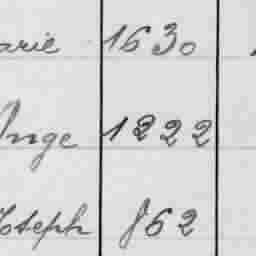 arie 1630
Ange 1222
Joseph 862